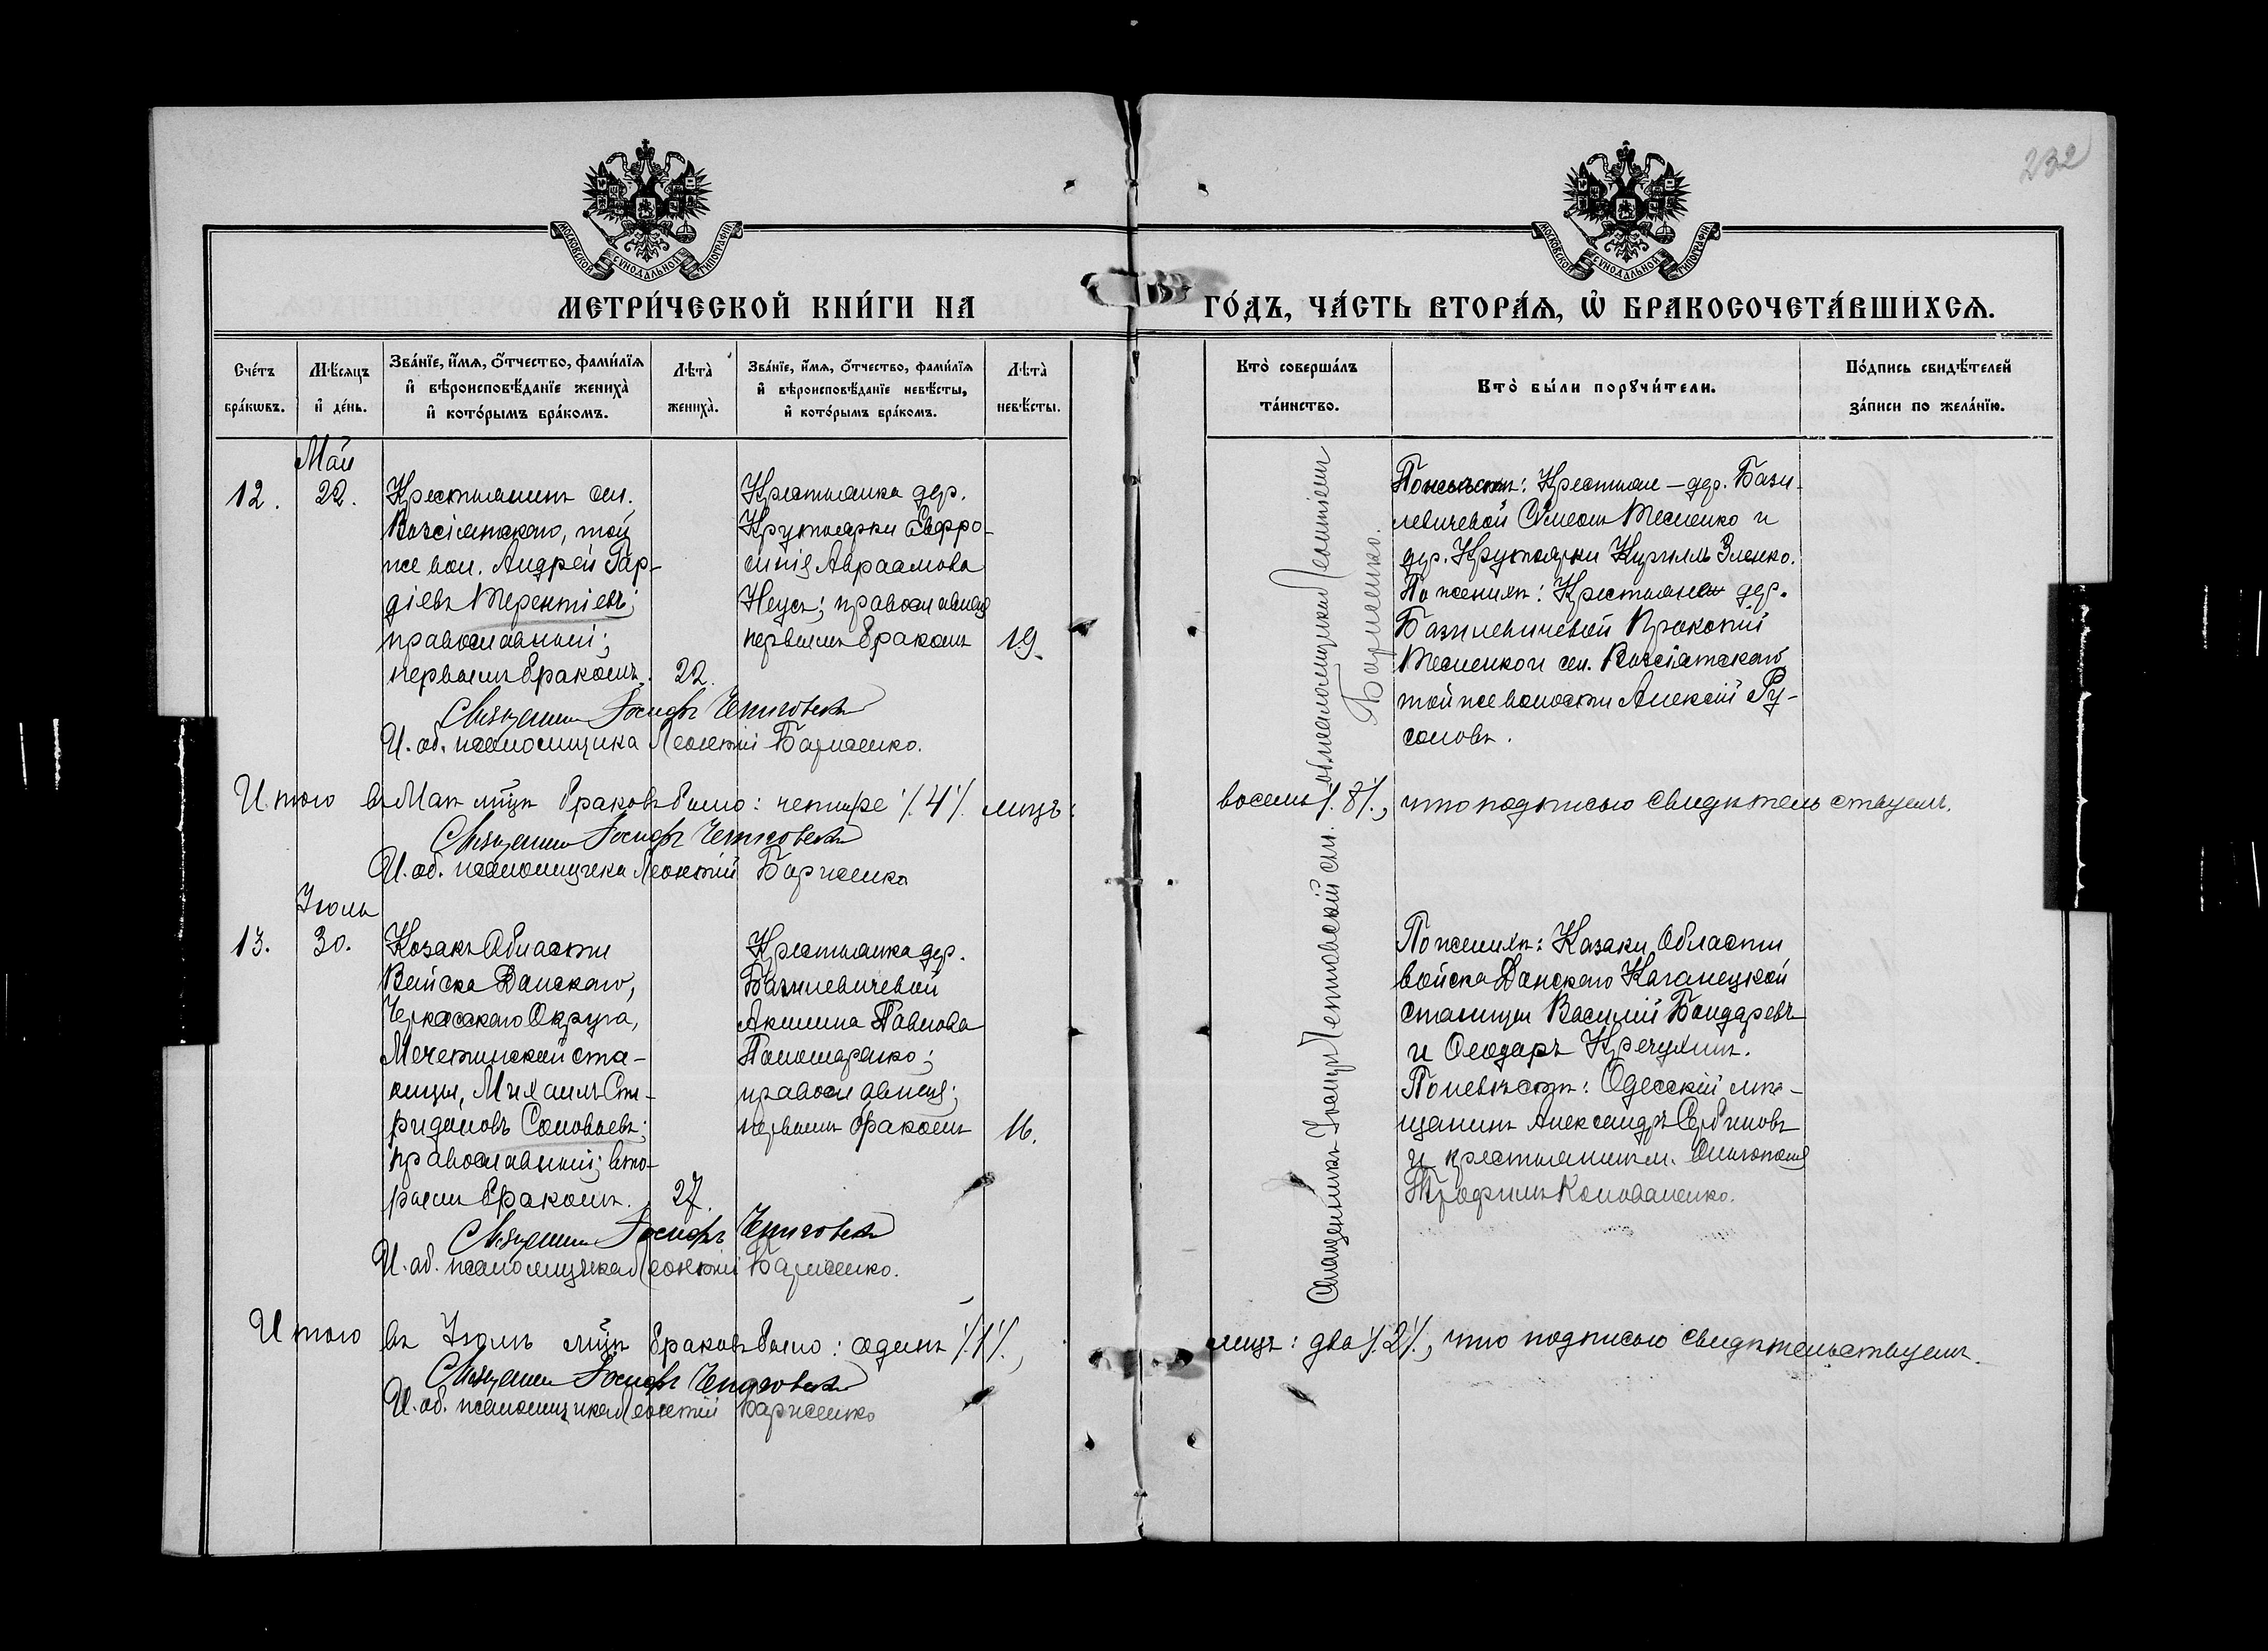 232
МОСКОВСКОЙ СѴНОДАЛЬНОЙ ТИПОГРАФІИ
МОСКОВСКОЙ СѴНОДАЛЬНОЙ ТИПОГРАФІИ
МЕТРИ́ЧЕСКОЙ КНИ́ГИ НА
ГО́ДЪ, ЧА́СТЬ ВТОРА́Ѧ, Ѽ БРАКОСОЧЕТА́ВШИХСѦ.
Сче́тъ
бра́кѡвъ.
Мѣ́сяцъ
и҆ де́нь.
Зва́нїе, и҆́мѧ, ѻ҆́тчество, фами́лїѧ
и҆ вѣроисповѣ́данїе жениха̀
и҆ кото́рымъ бра́комъ.
Лѣта̀
жениха̀.
Зва́нїе, и҆́мѧ, ѻ҆́тчество, фами́лїѧ
и҆ вѣроисповѣ́данїе невѣ́сты,
и҆ кото́рымъ бра́комъ.
Лѣта̀
невѣ́сты.
Кто̀ соверша́лъ
та́инство.
Кто̀ бы́ли порꙋчи́тели.
По́дпись свидѣ́телей
за́писи по жела́нїю.
Май
12.
22.
Крестьянинъ сел.
Вознесенскаго, той
же вол. Андрей Гор-
діевъ Терентіевъ;
православный;
первымъ бракомъ.
22.
Крестьянка дер.
Крутоярки Евфро-
синія Авраамова
Неусъ; православная
первымъ бракомъ
19.
По невѣстѣ: Крестьяне - дер. Бази-
левичевой Сѵмеонъ Тесленко и
дер. Крутоярки Кириллъ Зленко.
По женихѣ: Крестьяне дер.
Базилевичевой Прокопій
Тесленко и сел.
той же волости Алексій Ру-
совъ.
Священникъ Іосифъ
И. об. псаломщика Леонтій Борисенко.
Итого въ Маѣ мцѣ браковъ было: четыре /.4/. лицъ:
восемь /.8/., что подписью свидѣтельствуемъ.
Священникъ Іосифъ
И. об. псаломщика Леонтій Борисенко
Іюль
13.
30.
Козакъ Области
Войска Донскаго,
Черкасскаго Округа,
Мечетинской ста-
ницы, Михаилъ Спи-
ридоновъ Соловьевъ;
православный; вто-
рымъ бракомъ.
27.
Крестьянка дер.
Базилевичевой
Акилина Павлова
Пономаренко;
православная;
первымъ бракомъ
16.
По женихѣ: Казаки Области
войска Донскаго Кагальницкой
станицы Василий Бондаревъ
и Ѳеодоръ Кречунъ.
По невѣстѣ: Одесскій мѣ-
щанинъ Александръ Сербиновъ
и крестьянинъ м. Ольгополя
Трофимъ Коноваленко.
Священникъ Іосифъ
И. об. псаломщика Леонтій Борисенко.
Итого въ Іюлѣ мцѣ браковъ было: одинъ /.1/.,
лицъ: два /.2/., что подписью свидѣтельствуемъ.
Священникъ Іосифъ
И. об. псаломщика Леонтій Борисенко
Священникъ Іосифъ съ и. об. псаломщика Леонтіемъ
Борисенко.